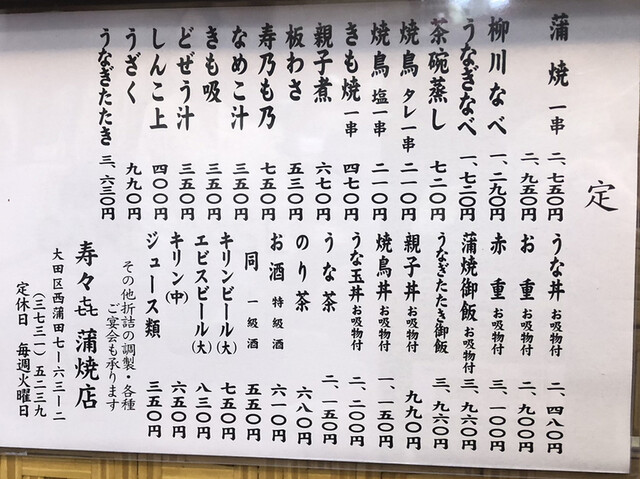 定
蒲焼 一串 二、七五〇円
二、九五〇円
柳川なべ 一、二九〇円
うなぎなべ 一、七二〇円
茶碗蒸し 七二〇円
焼鳥 タレ 一串 二一〇円
焼鳥 塩 一串 二一〇円
きも焼 一串 四七〇円
親子煮 六七〇円
板わさ 五三〇円
寿乃も乃 七五〇円
なめこ汁 三五〇円
きも吸 三五〇円
どぜう汁 三五〇円
しんこ上 四〇〇円
うざく 九九〇円
うなぎたたき 三、六三〇円
うな丼 お吸物付 二、四八〇円
お重 お吸物付 二、九〇〇円
赤重 お吸物付 三、一〇〇円
蒲焼御飯 お吸物付 三、九六〇円
うなぎたたき御飯 三、九六〇円
親子丼 お吸物付 九九〇円
焼鳥丼 お吸物付 一、一五〇円
うな玉丼 お吸物付 二、二〇〇円
うな茶 二、一五〇円
のり茶 六八〇円
お酒 特級酒 六一〇円
同 一級酒 五五〇円
キリンビール(大) 七五〇円
エビスビール(大) 八三〇円
キリン(中) 六五〇円
ジュース類 三五〇円
その他折詰の調製・各種
ご宴会も承ります
寿々㐂 蒲焼店
大田区西蒲田七ー六三ー二
(三七三一)五二三九
定休日 毎週火曜日